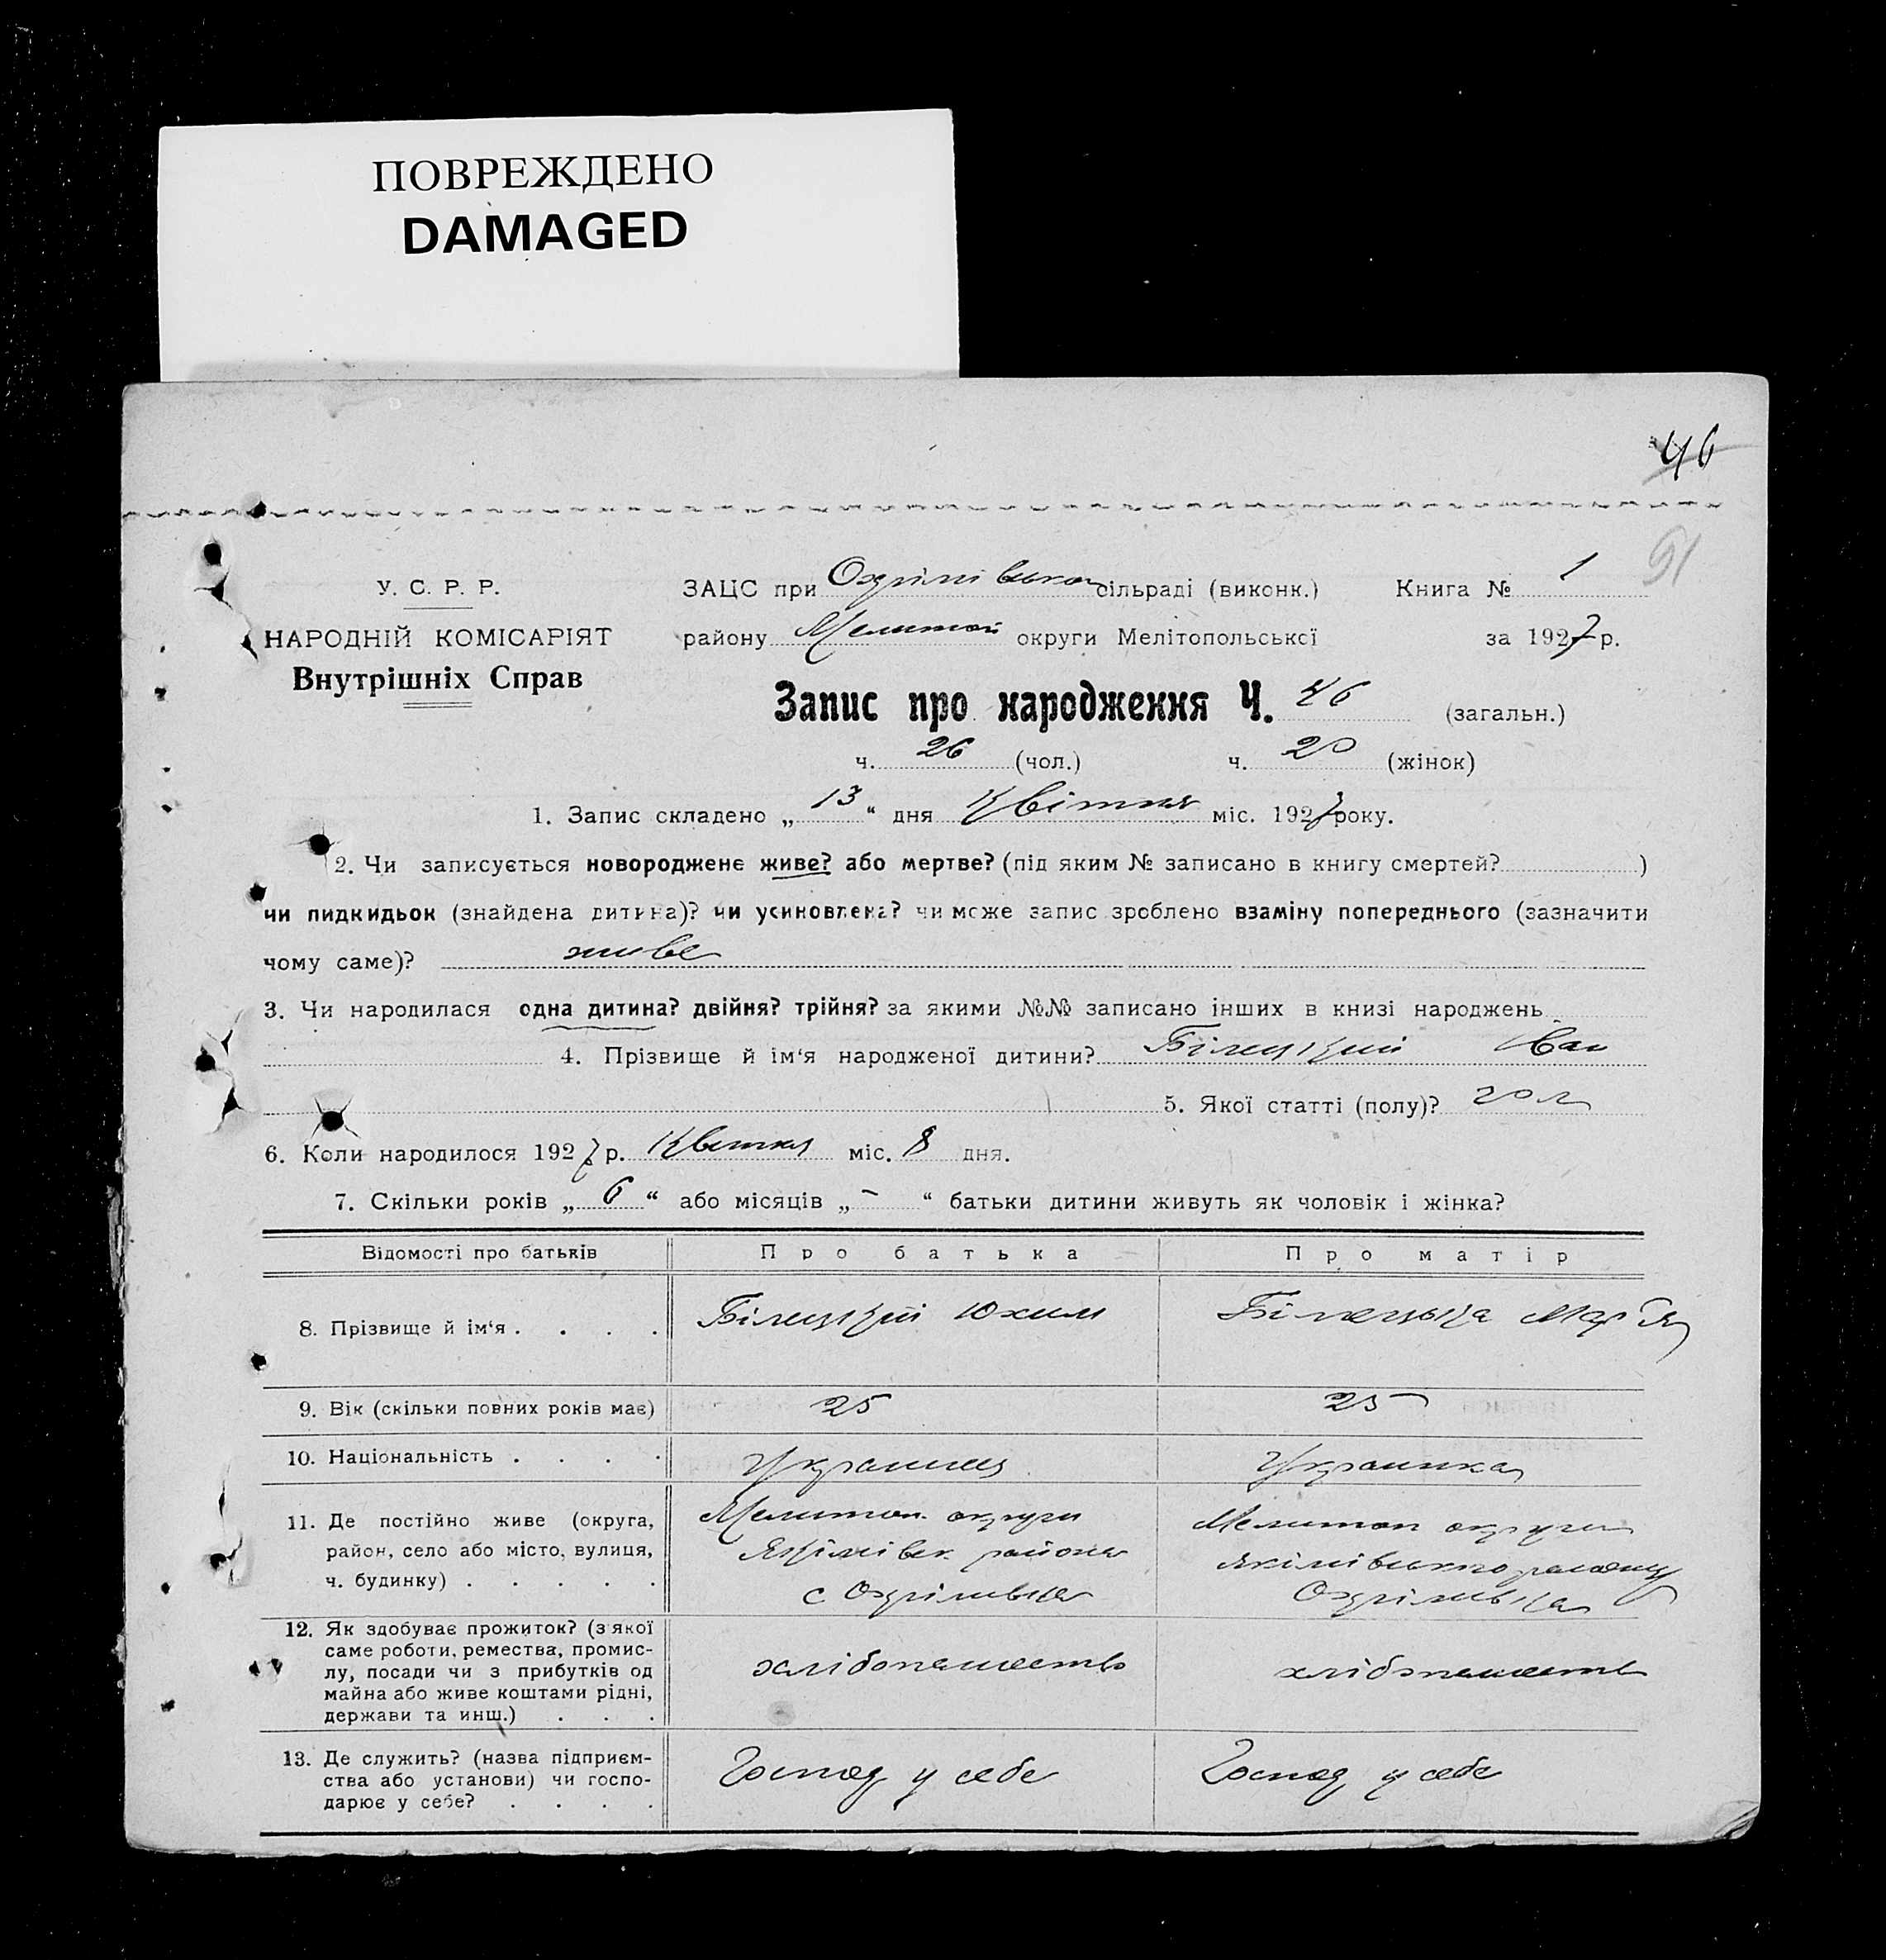 ПОВРЕЖДЕНО
DAMAGED
46
91
У. С. Р. Р.
НАРОДНІЙ КОМІСАРІЯТ
Внутрішніх Справ
ЗАЦС при Охрімівська сільраді (виконк.) Книга № 1
району Мелитоп округи Мелітопольської за 1927 р.
Запис про народження Ч. 46 (загальн.)
ч. 26 (чол.) ч. 20 (жінок)
1. Запис складено „ 13 “ дня Квітня міс. 1927 року.
2. Чи записується новороджене живе? або мертве? (під яким № записано в книгу смертей? )
чи пидкидьок (знайдена дитина)? чи усиновлена? чи може запис зроблено взаміну попереднього (зазначити
чому саме)? живе
3. Чи народилася одна дитина? двійня? трійня? за якими №№ записано інших в книзі народжень
4. Прізвище й ім‘я народженої дитини? Білецкий Іван
5. Якої статті (полу)? чол
6. Коли народилося 1927 р. Квітня міс. 8 дня.
7. Скільки років „ 6 “ або місяців „ - “ батьки дитини живуть як чоловік і жінка?
Відомості про батьків Про батька Про матір
8. Прізвище й ім‘я . . . . Білецкий Юхим Білецька Мар'я
9. Вік (скільки повних років має) 25 25
10. Національність . . . . Украинец Украинка
11. Де постійно живе (округа, Мелитоп. округи Мелитоп округи
район, село або місто, вулиця, Якімівск. района Якімівського району
ч. будинку) . . . . . с Охрімівка Охрімівка
12. Як здобуває прожиток? (з якої
саме роботи, ремества, промис-
лу, посади чи з прибутків од хлібопашество хлібопашеств
майна або живе коштами рідні,
держави та инш.) . . .
13. Де служить? (назва підприєм- Господ у себе Господ у себе
ства або установи) чи госпо-
дарює у себе? . . . .